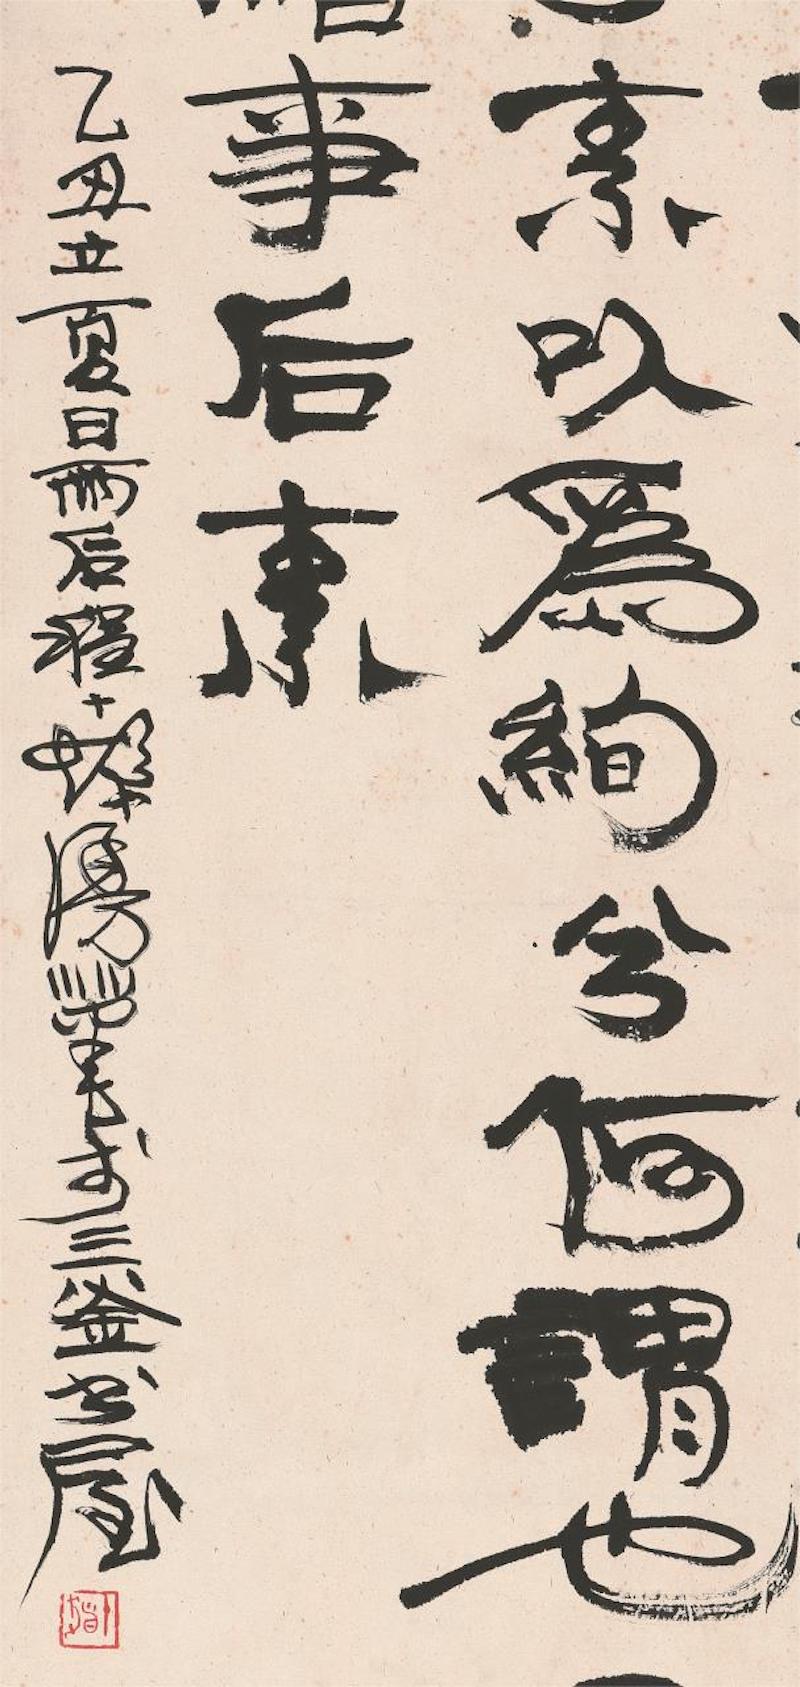 素以為絢兮何謂也
繪事后素
乙丑立夏日雨后 於三釜書屋